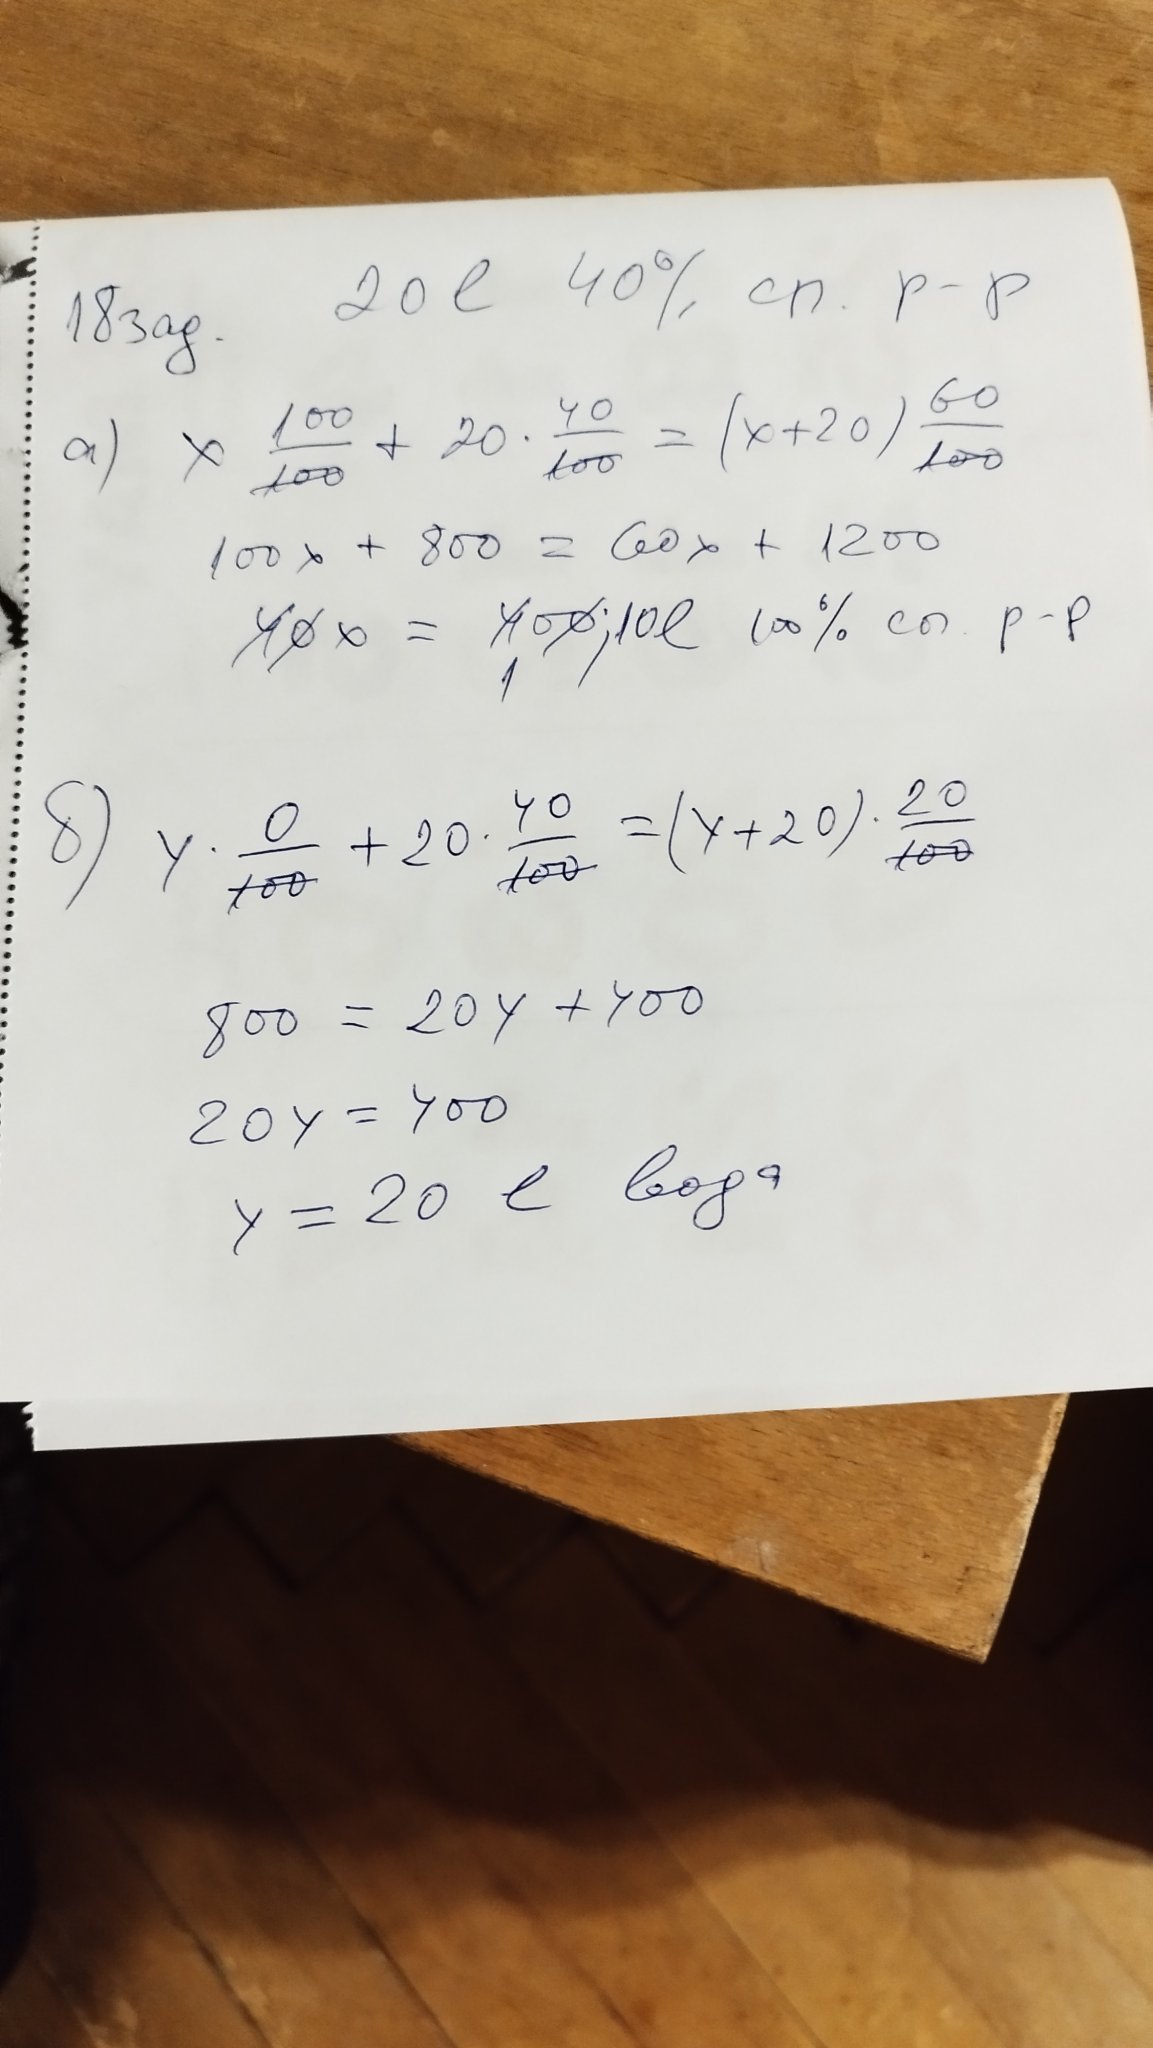 18 зад. 20 l 40% сп. р-р
а) x 100/100 + 20 . 40/100 = (x+20) 60/100
100x + 800 = 60x + 1200
40x = 400; 10l 100% сп. р-р
1
б) y . 0/100 + 20 . 40/100 = (y+20) . 20/100
800 = 20y + 400
20y = 400
y = 20 l вода